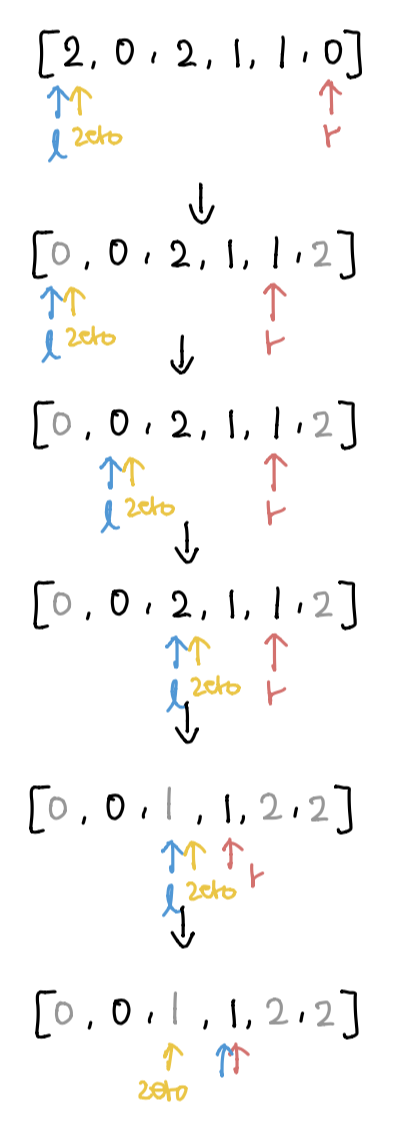 [2, 0, 2, 1, 1, 0]
l zero r
[0, 0, 2, 1, 1, 2]
l zero r
[0, 0, 2, 1, 1, 2]
l zero r
[0, 0, 2, 1, 1, 2]
l zero r
[0, 0, 1, 1, 2, 2]
l zero r
[0, 0, 1, 1, 2, 2]
zero